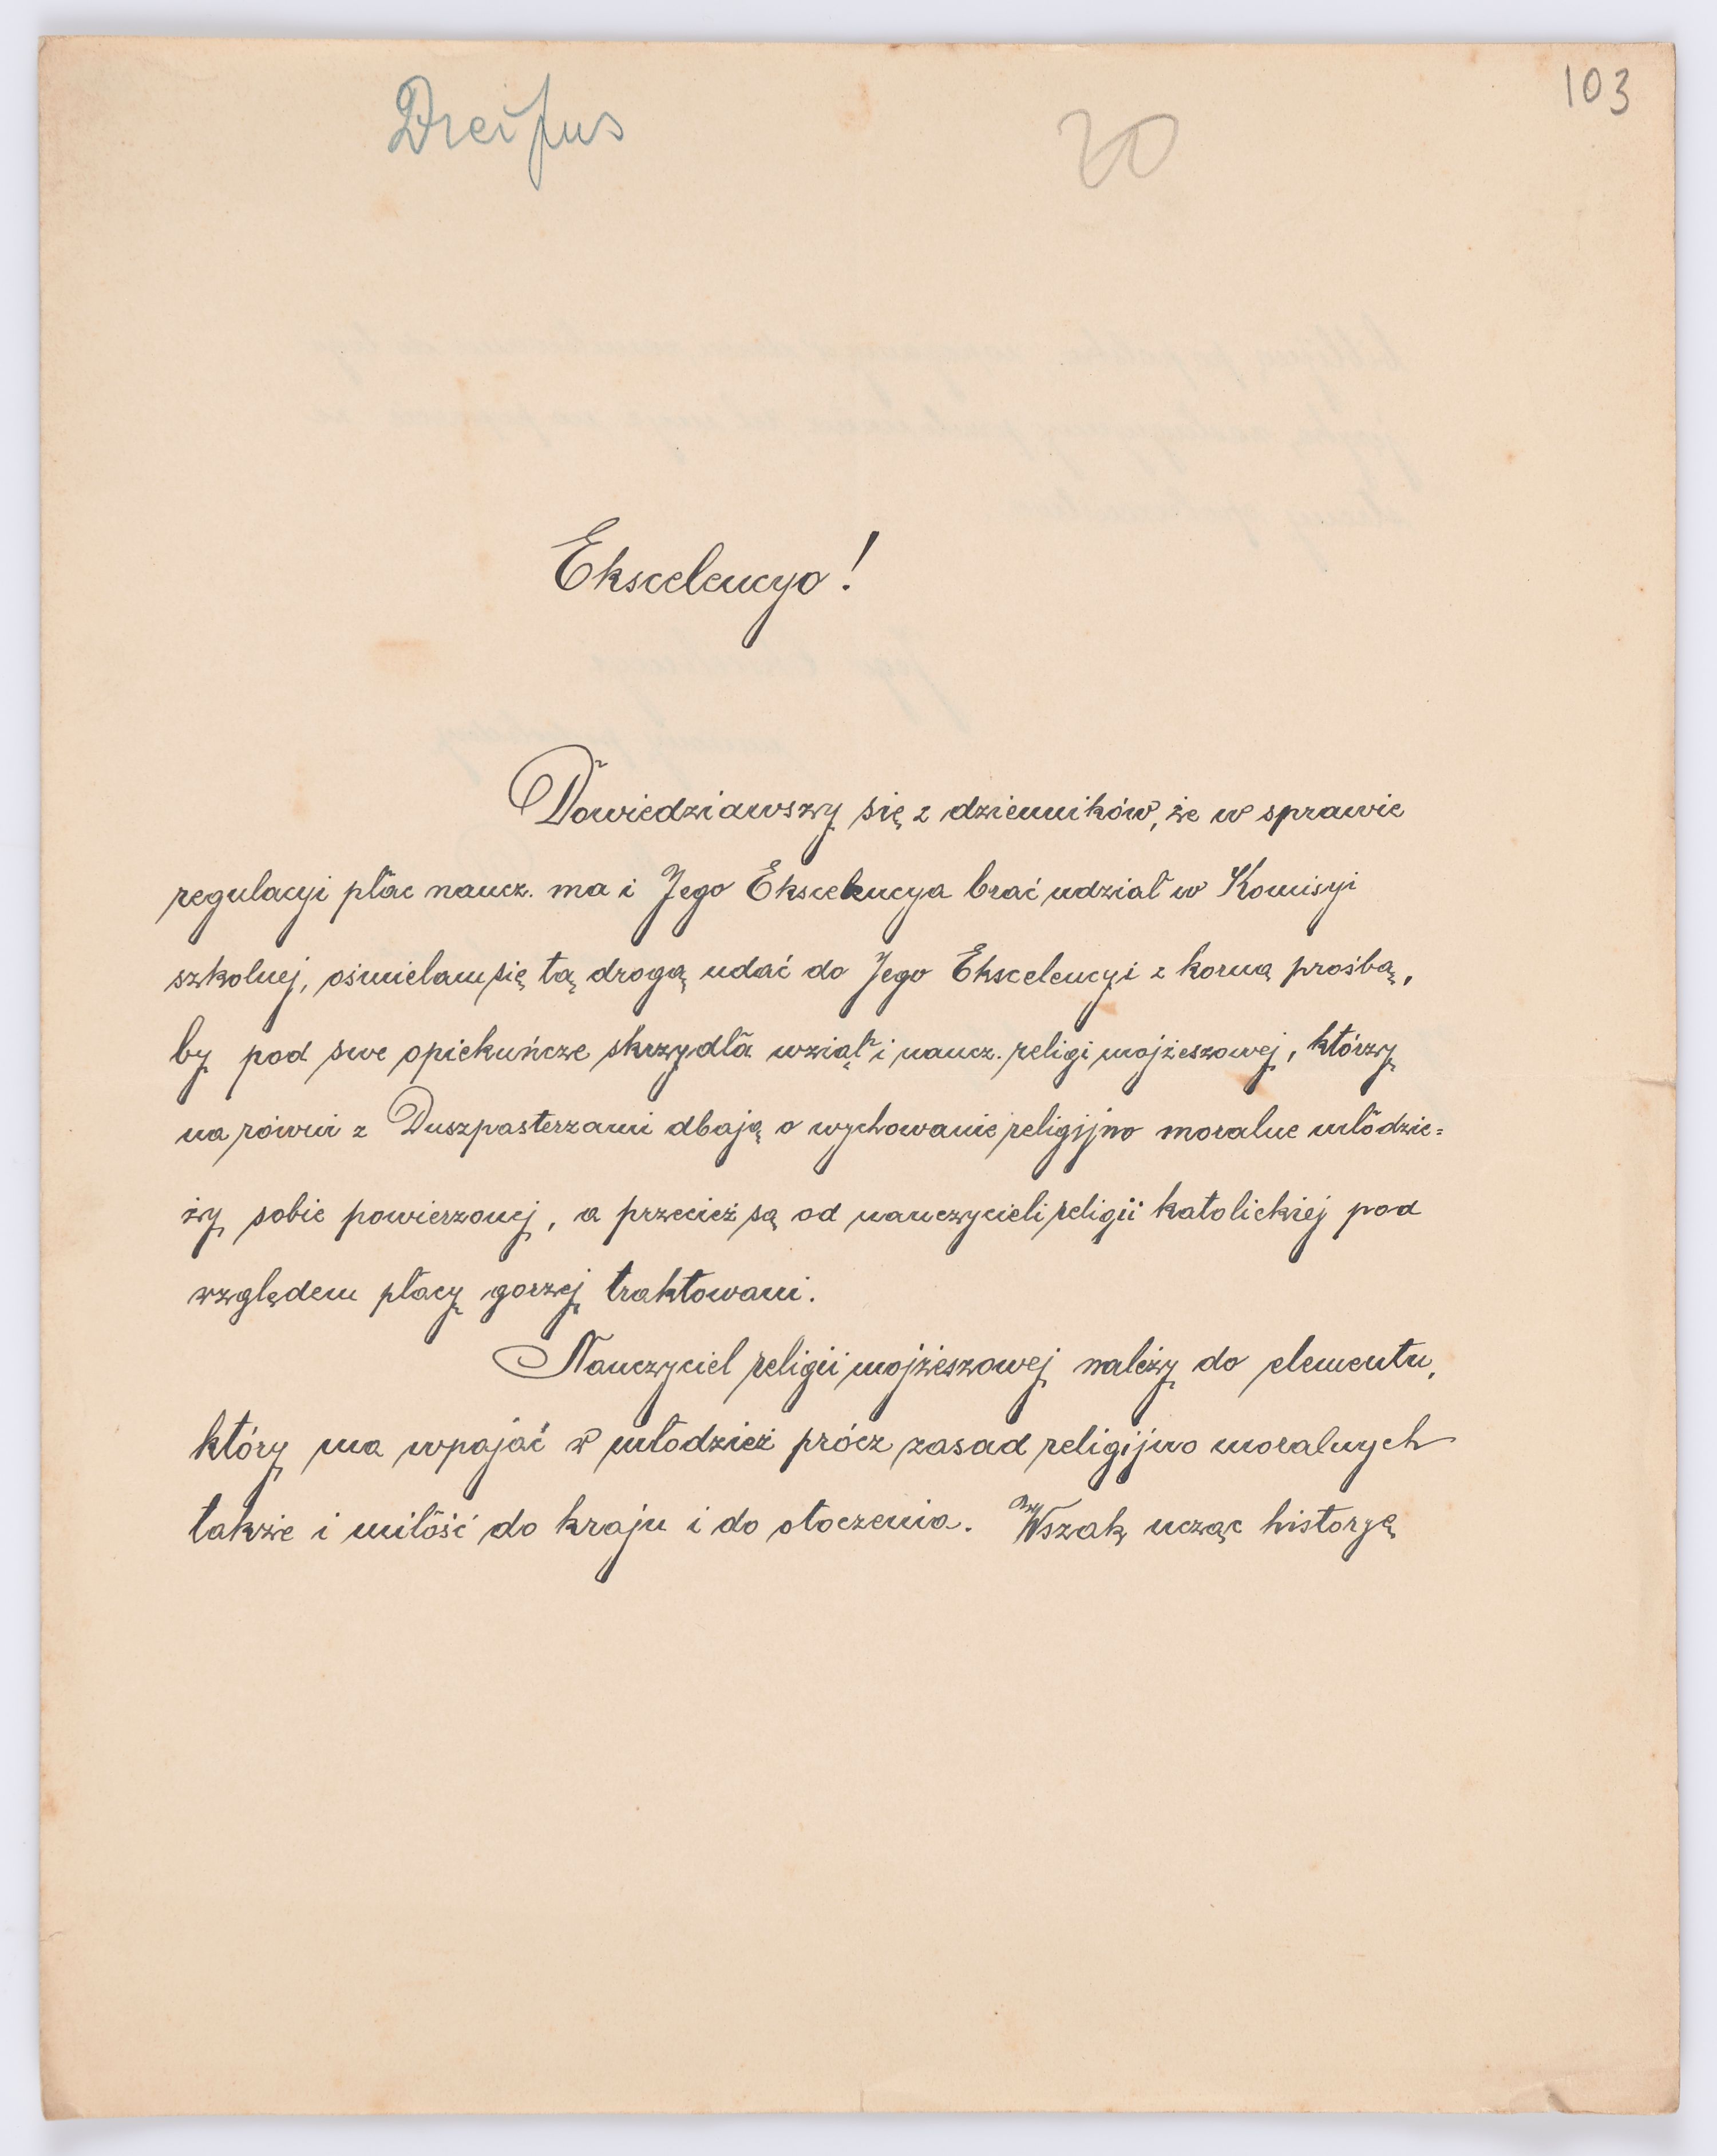 Dreifus
20
103
Ekscelencyo!
Dowiedziawszy się z dzienników, że w sprawie
regulacyi płac naucz. ma i Jego Ekscelencya brać udział w Komisyi
szkolnej, ośmielam się tą drogą udać do Jego Ekscelencyi z korną prośbą,
by pod swe opiekuńcze skrzydła wziął i naucz. religi mojżeszowej, którzy
na równi z Duszpasterzami dbają o wychowanie religijno moralne młodzie=
ży sobie powierzonej, a przecież są od nauczycieli religii katolickiej pod
względem płacy gorzej traktowani.
Nauczyciel religii mojżeszowej należy do elementu,
który ma wpajać w młodzież prócz zasad religijno moralnych
także i miłość do kraju i do otoczenia. Wszak ucząc historyę